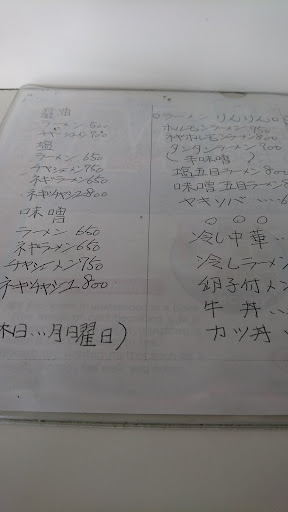 醤油
ラーメン 600
チャシューメン 700
塩
ラーメン 650
チャシューメン 750
ネギラーメン 650
ネギチャシュー 800
味噌
ラーメン 650
ネギラーメン 650
チャシューメン 750
ネギチャシュー 800
休日…月曜日)
ラーメンりんりん
ホルモンラーメン 950
タンタンラーメン 900
(辛味噌)
塩五目ラーメン 800
味噌五目ラーメン
ヤキソバ
○ ○ ○
冷し中華…
冷しラーメン
牛丼…
カツ丼…